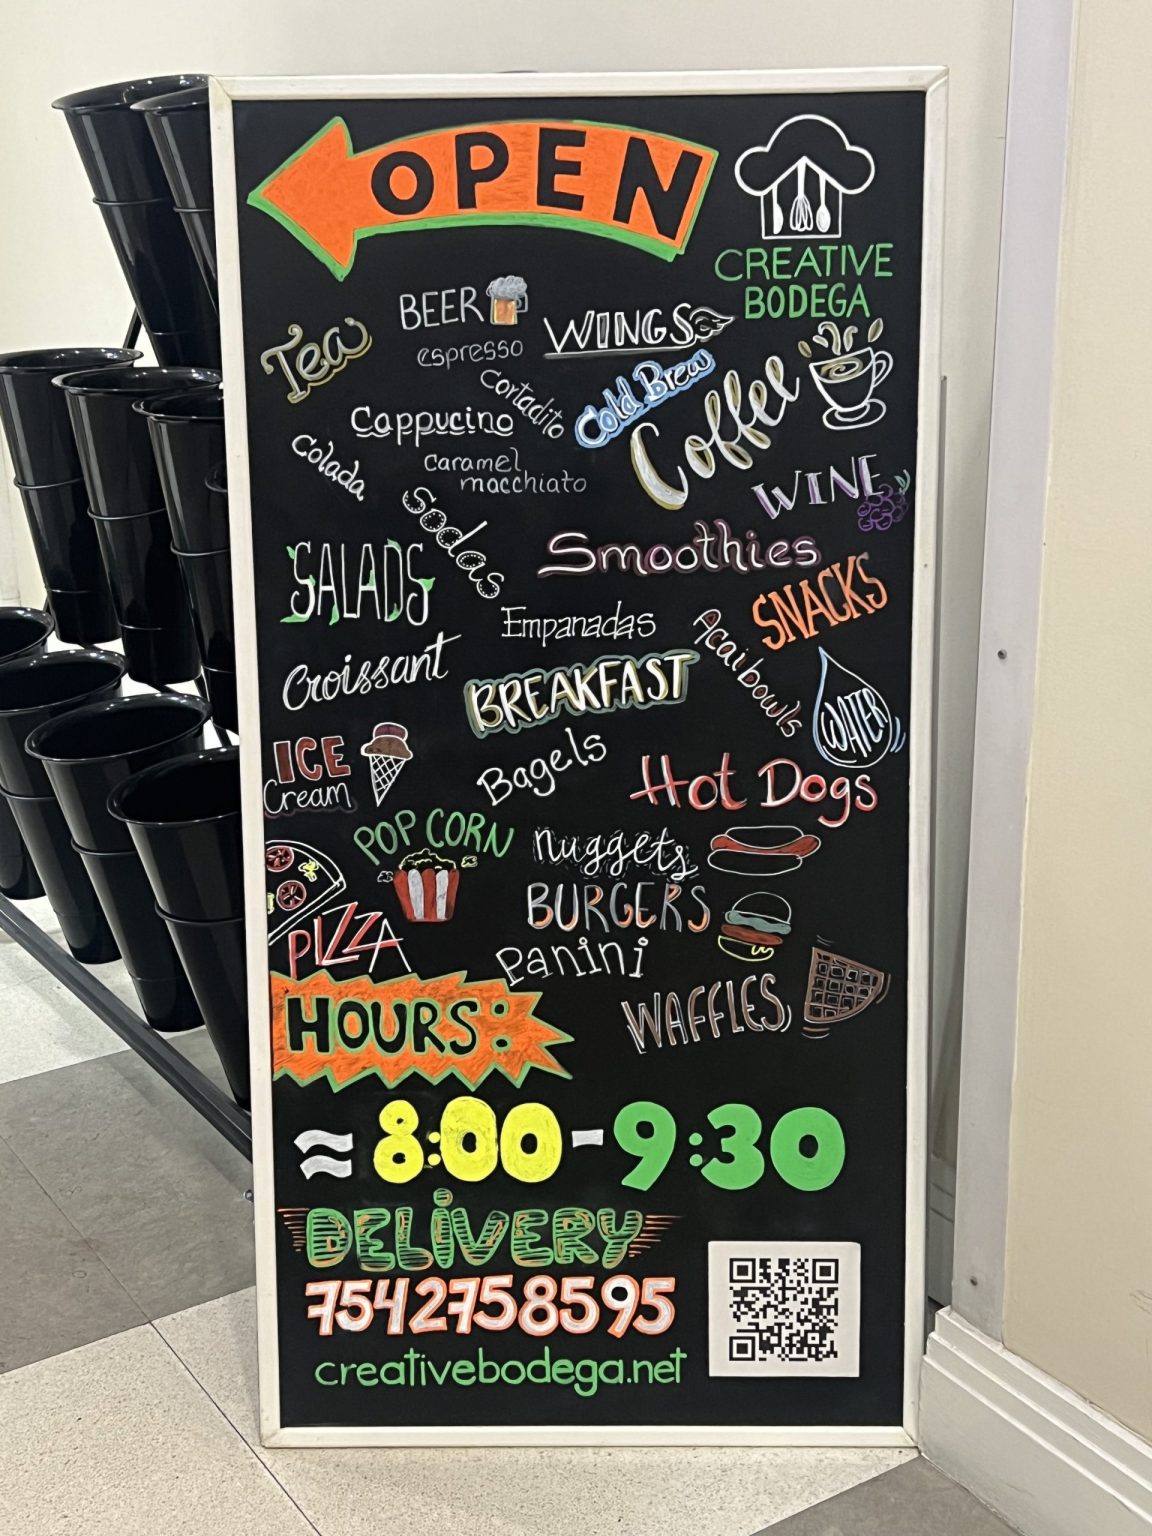 OPEN
CREATIVE
BODEGA
BEER
WINGS
Tea
espresso
Cortadito
Cold Brew
Coffee
Cappucino
Colada
caramel
macchiato
WINE
Sodas
Smoothies
SALADS
SNACKS
Empanadas
Acai bowls
Croissant
BREAKFAST
WATER
ICE
Cream
Bagels
Hot Dogs
POP CORN
Nuggets
BURGERS
PIZZA
Panini
WAFFLES
HOURS:
≈ 8:00-9:30
DELIVERY
7542758595
creativebodega.net